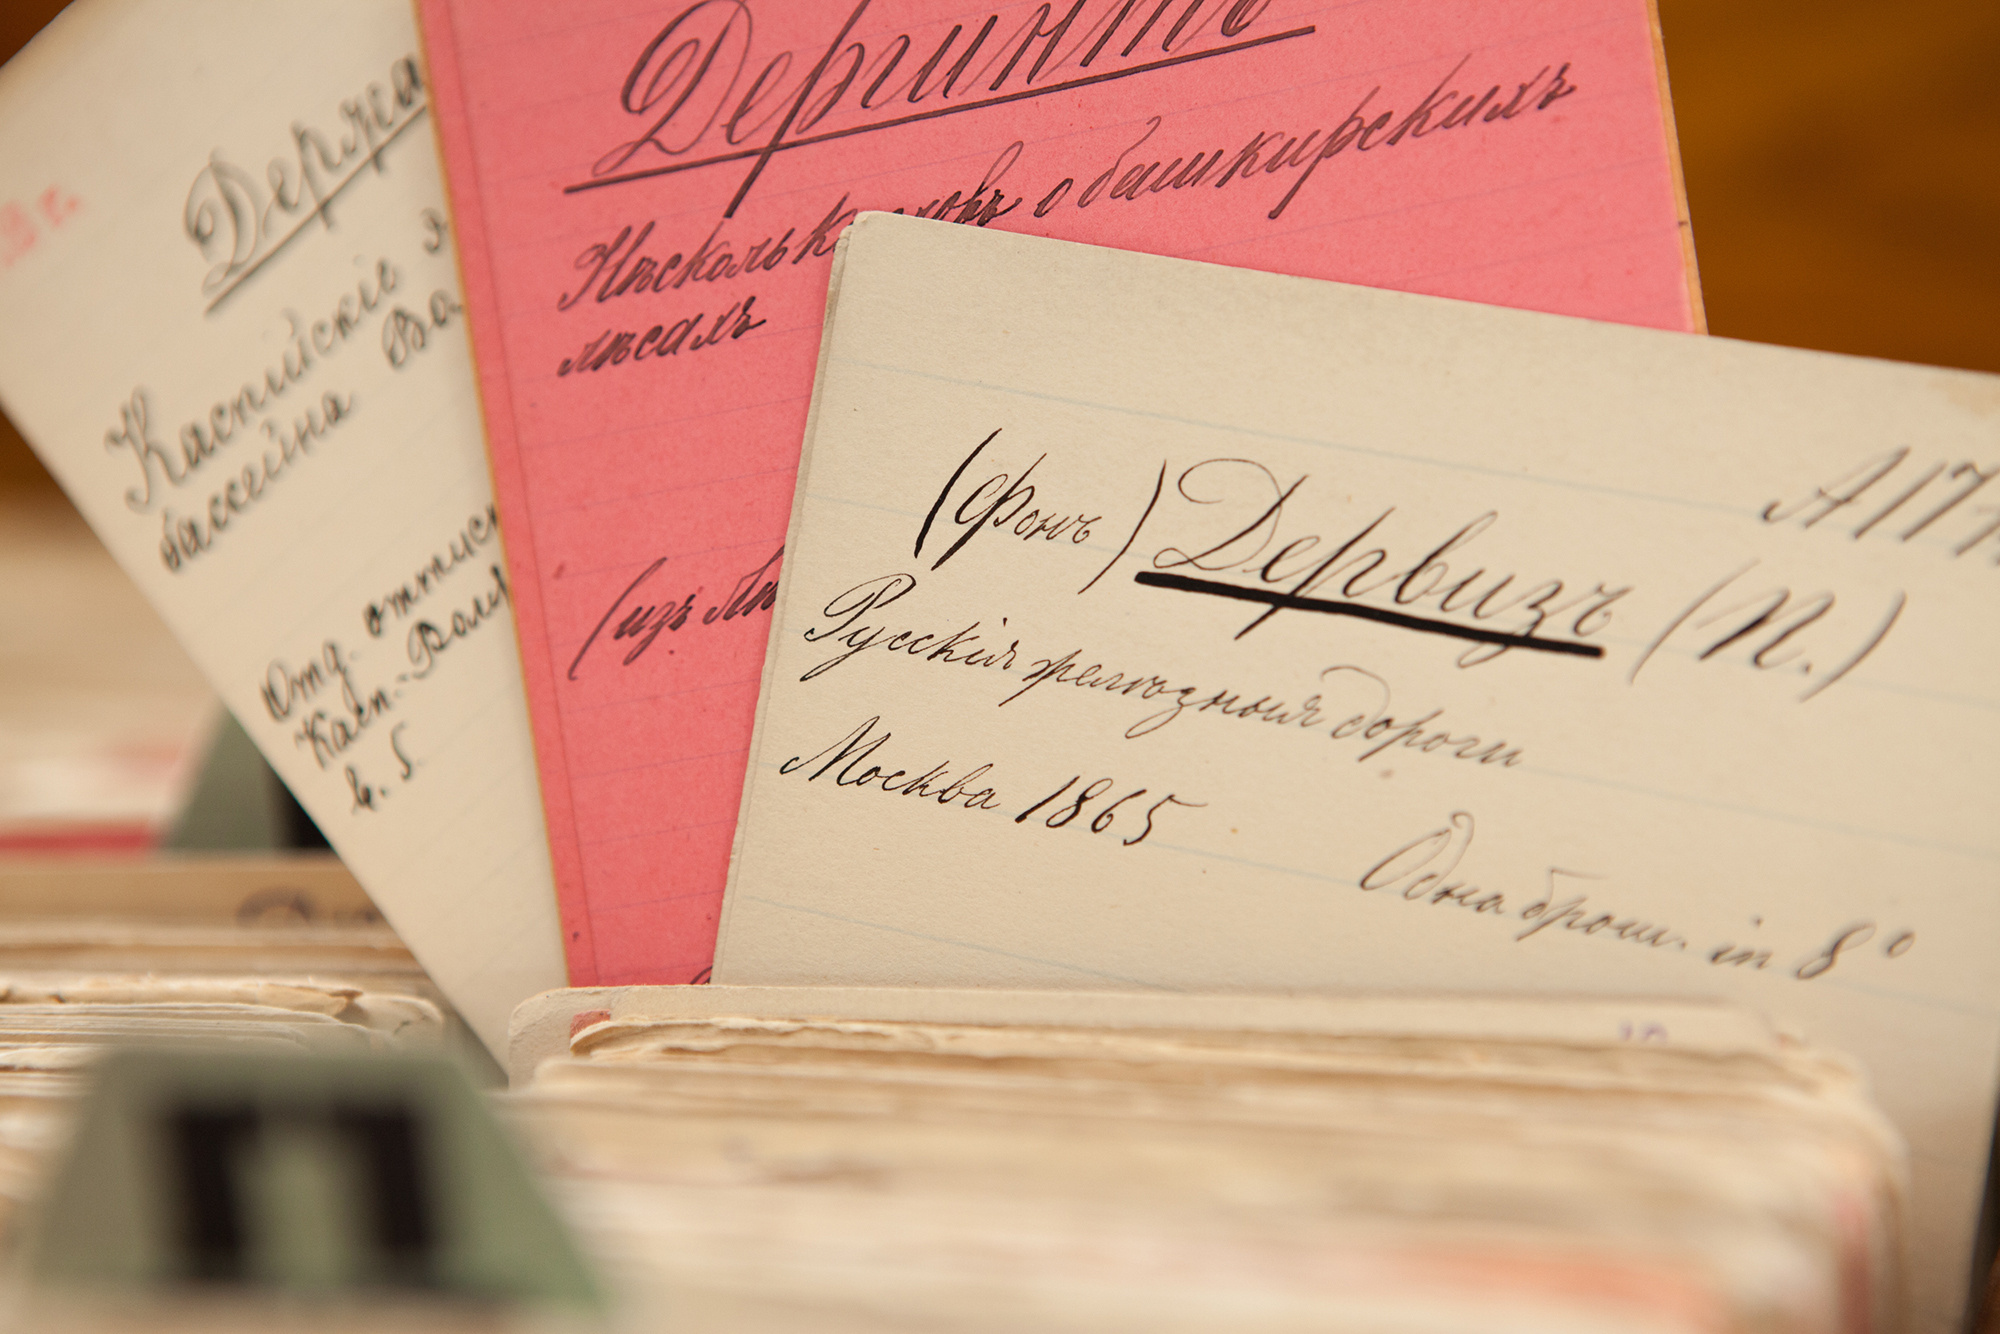 Держа
Каспійскіе
бассейна Во
Отд. оттиск
Касп.-Волж
в. 5.
Дергинтъ
о башкирскихъ
лѣсахъ
(изъ
А 17
(фонъ) Дервизъ (П.)
Русскія желѣзныя дороги
Москва 1865
Одна брош. in 8°
П